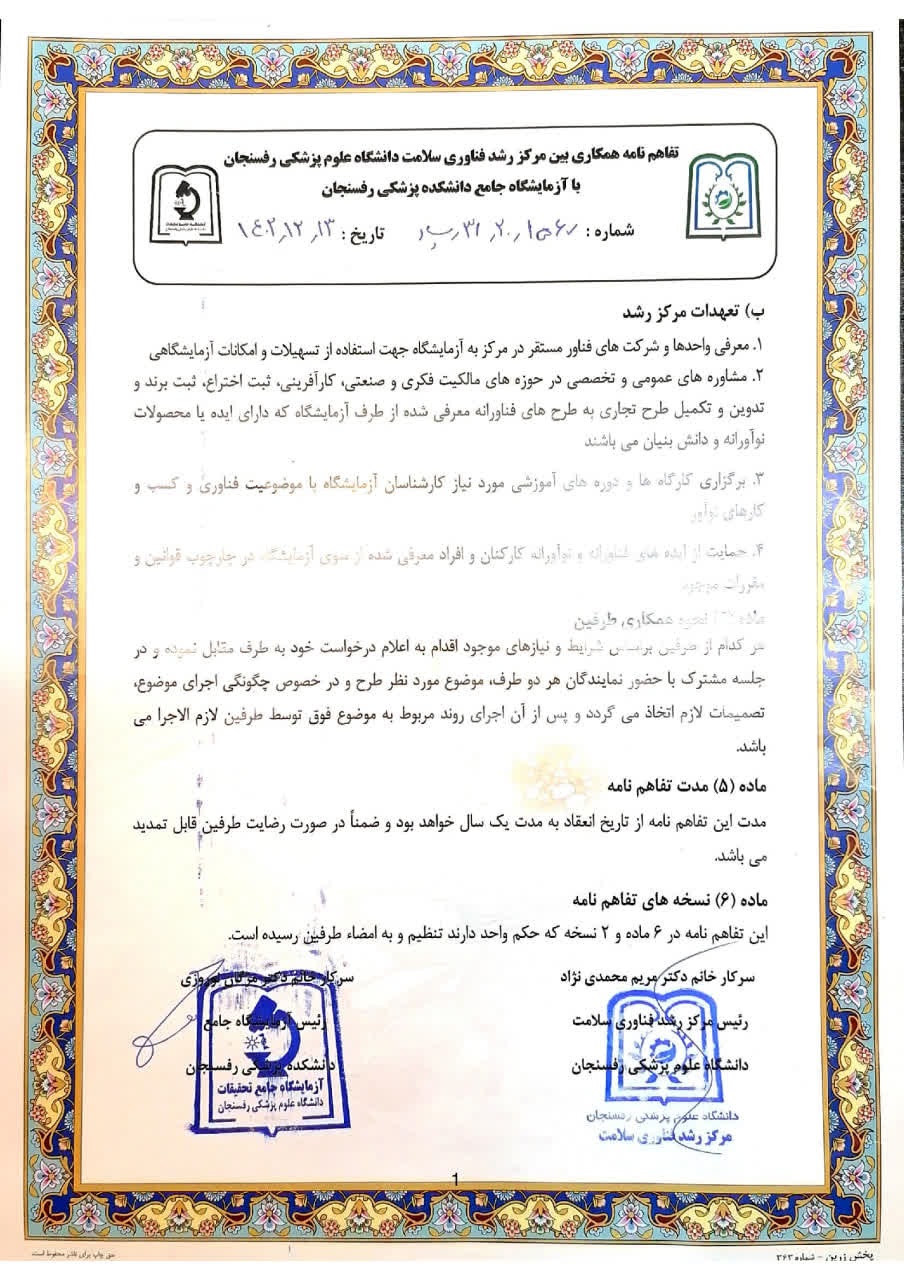 تفاهم نامه همکاری بین مرکز رشد فناوری سلامت دانشگاه علوم پزشکی رفسنجان
با آزمایشگاه جامع دانشکده پزشکی رفسنجان
شماره :
تاریخ : ۱۴۰۲,۱۲,۱۳
ب) تعهدات مرکز رشد
۱. معرفی واحدها و شرکت های فناور مستقر در مرکز به آزمایشگاه جهت استفاده از تسهیلات و امکانات آزمایشگاهی
۲. مشاوره های عمومی و تخصصی در حوزه های مالکیت فکری و صنعتی، کارآفرینی، ثبت اختراع، ثبت برند و
تدوین و تکمیل طرح تجاری به طرح های فناورانه معرفی شده از طرف آزمایشگاه که دارای ایده یا محصولات
نوآورانه و دانش بنیان می باشند
۳. برگزاری کارگاه ها و دوره های آموزشی مورد نیاز کارشناسان آزمایشگاه با موضوعیت فناوری و کسب و
کارهای نوآور
۴. حمایت از ایده های فناورانه و نوآورانه کارکنان و افراد معرفی شده از سوی آزمایشگاه در چارچوب قوانین و
مقررات موجود
ماده نحوه همکاری طرفین
هر کدام از طرفین براساس شرایط و نیازهای موجود اقدام به اعلام درخواست خود به طرف مقابل نموده و در
جلسه مشترک با حضور نمایندگان هر دو طرف، موضوع مورد نظر طرح و در خصوص چگونگی اجرای موضوع،
تصمیمات لازم اتخاذ می گردد و پس از آن اجرای روند مربوط به موضوع فوق توسط طرفین لازم الاجرا می
باشد.
ماده (۵) مدت تفاهم نامه
مدت این تفاهم نامه از تاریخ انعقاد به مدت یک سال خواهد بود و ضمناً در صورت رضایت طرفین قابل تمدید
می باشد.
ماده (۶) نسخه های تفاهم نامه
این تفاهم نامه در ۶ ماده و ۲ نسخه که حکم واحد دارند تنظیم و به امضاء طرفین رسیده است.
سرکار خانم دکتر مریم محمدی نژاد
رئیس مرکز رشد فناوری سلامت
دانشگاه علوم پزشکی رفسنجان
دانشگاه علوم پزشکی رفسنجان
مرکز رشد فناوری سلامت
سرکار خانم دکتر مژگان نوروزی
رئیس آزمایشگاه جامع
دانشکده پزشکی رفسنجان
آزمایشگاه جامع تحقیقات
دانشگاه علوم پزشکی رفسنجان
1
پخش زرین - شماره ۳۶۳
حق چاپ برای ناشر محفوظ است.